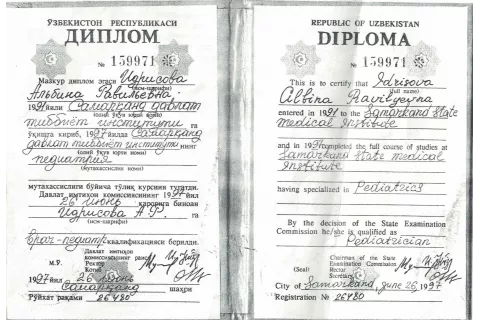 ЎЗБЕКИСТОН РЕСПУБЛИКАСИ
ДИПЛОМ
№ 159971
Мазкур диплом эгаси Идрисова
Альбина Равильевна,
(исм-шарифи)
1991 йили Самарқанд давлат
тиббиёт институти га
(олий ўқув юрти номи)
ўқишга кириб, 1997 йилда Самарқанд
давлат тиббиёт институти нинг
(олий ўқув юрти номи)
педиатрия
(мутахассислик номи)
мутахассислиги бўйича тўлиқ курсини тугатди.
Давлат имтиҳон комиссиясининг 1997 йил
26 июнь қарорига биноан
Идрисова А.Р. га
(исм-шарифи)
Врач-педиатр квалификацияси берилди.
М.Ў.
Давлат имтиҳон
комиссиясининг раиси
Ректор
Котиб
1997 йил 26 июнь
Самарқанд шаҳри
Рўйхат рақами 26480
REPUBLIC OF UZBEKISTAN
DIPLOMA
№ 159971
This is to certify that Idrisova
(full name)
Albina Ravilyevna
entered in 1991 to the Samarkand State
Medical Institute
and in 1997 completed the full course of studies at
Samarkand State medical
Institute
having specialized in Pediatrics
By the decision of the State Examination
Commission he/she is qualified as
Pediatrician
(Seal)
Chairman of the State
Examination Commission
Rector
Secretary
City of Samarkand, june 26, 1997
Registration № 26480